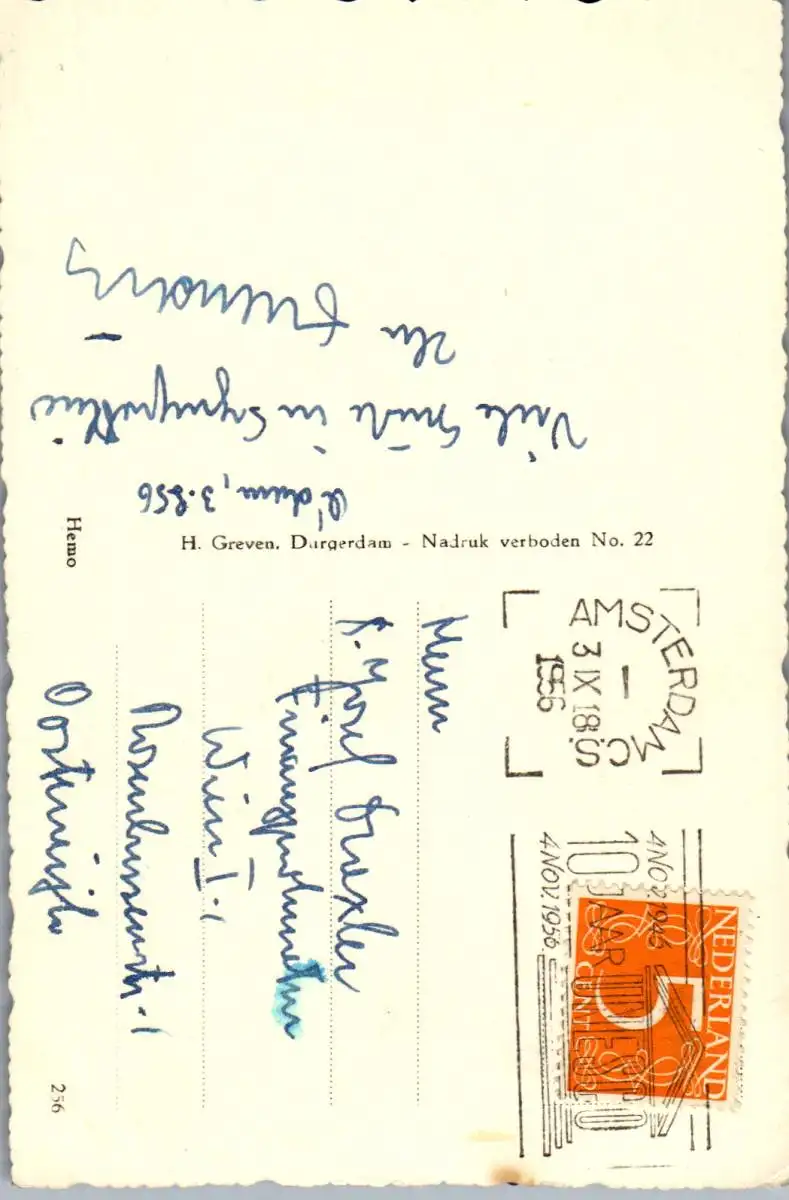 A'dam, 3.9.56
Viele Grüße in Sympathie
Ihr
H. Greven, Durgerdam - Nadruk verboden No. 22
Hemo
256
AMSTERDAM C.S.
3 IX 18
1956
4 NOV. 1946
10 JAAR UNESCO
4 NOV. 1956
NEDERLAND
5
CENT
Herrn
Josef Drexler
Wien I.,
Oostenrijk